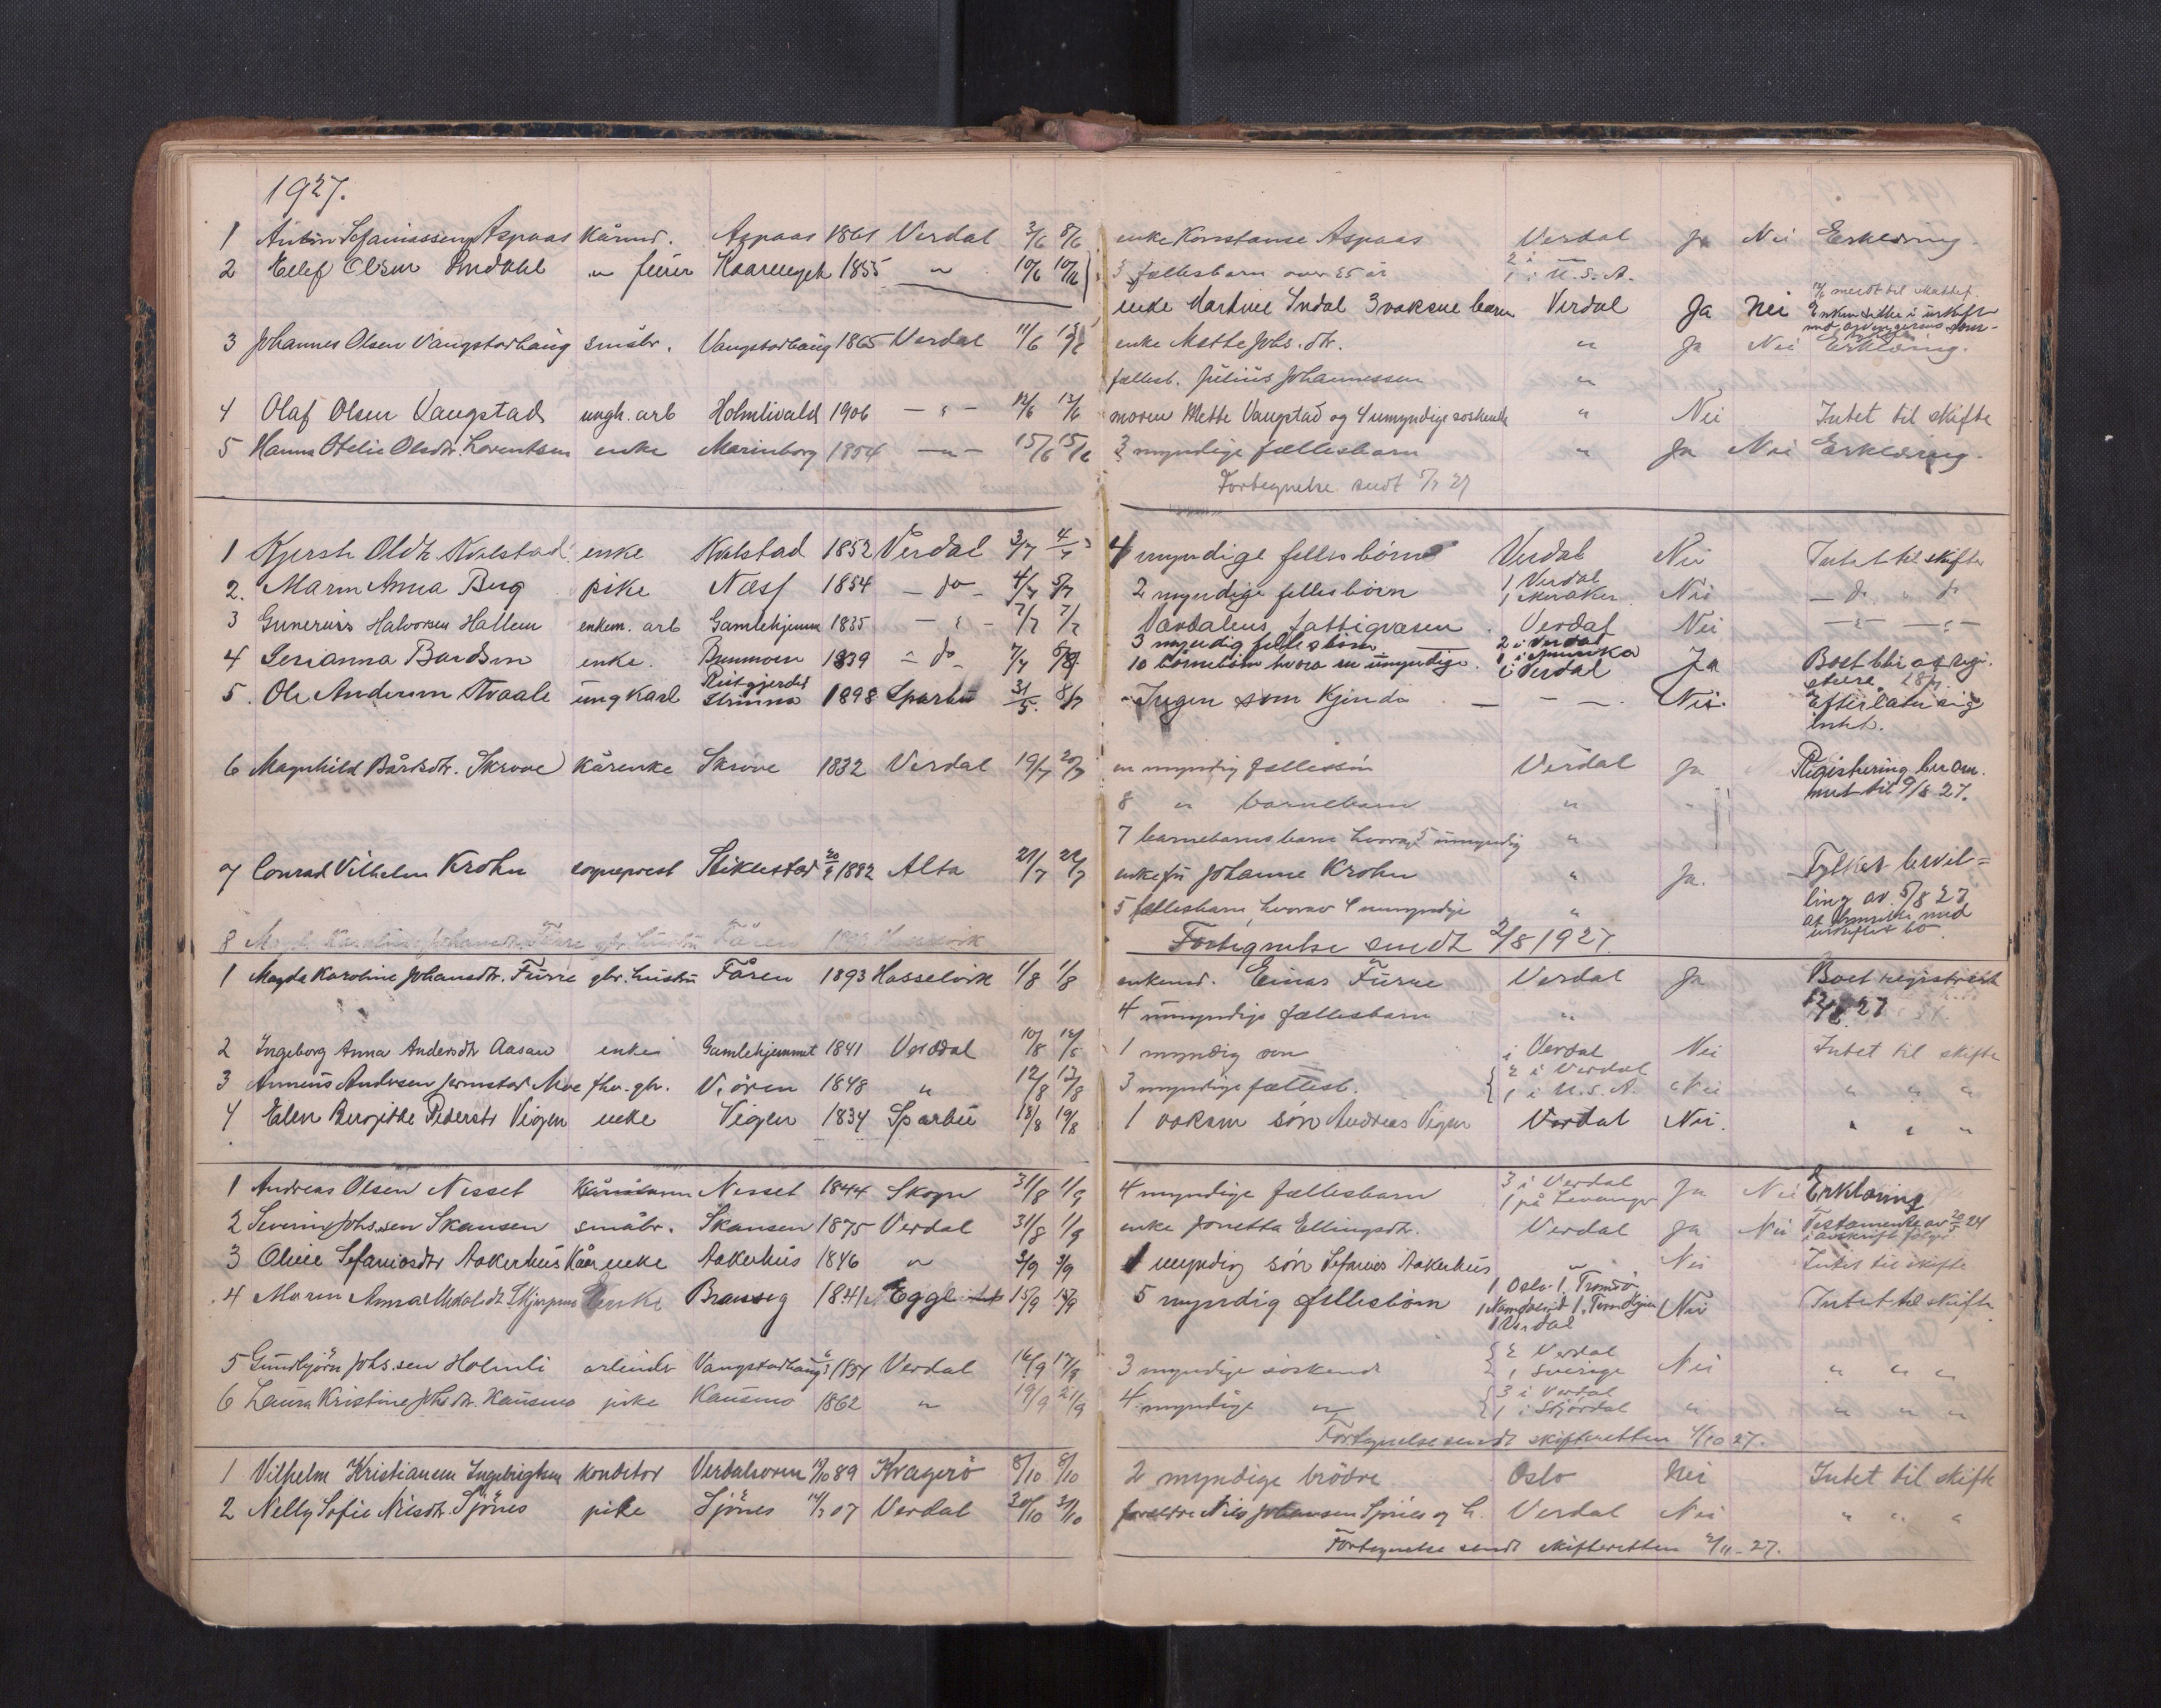 1927.
1 Anton Sefaniassen Aspaas kårmd. Aspaas 1861 Verdal 3/6 8/6 enke Konstanse Aspaas Verdal Ja Nei Erklæring
2 Ellef Olsen Indahl " 1855 " 10/6 10/6 3 fællesbarn over 25 år 2 i " 1 i U.S.A.
enke Martine Indal 3 voksne barn Verdal Ja Nei
3 Johannes Olsen Vangstadhaug småbr. Vangstadhaug 1865 Verdal 11/6 enke Mette Johs. dtr. " Ja Nei Erklæring.
fællesb. Julius Johannessen "
4 Olaf Olsen Vangstad ungk. arb Holmlivald 1906 — " — 12/6 13/6 moren Mette Vangstad og 4 umyndige søskende " Nei Intet til skifte
5 Hanna Otelie Olsdtr. Lorentsen enke Marinborg 1854 — " — 15/6 15/6 3 myndige fællesbarn " Ja Nei Erklæring.
Fortegnelse sendt 5/7 27
1 enke 1852 Verdal 3/7 4/7 4 myndige fellesbørn Verdal Nei Intet til skifte
2. Maren Anna Berg pike Næss 1854 — do — 4/7 5/7 2 myndige fellesbørn 1 Verdal 1 Meraker Nei — do " do
3 Gunerius Halvorsen Hallem enkem. arb Gamlehjemm 1835 — " — 7/7 7/7 Værdalens fattigvæsen Verdal Nei — " — — " —
3 myndig fellesbørn 2 i Verdal 1 i Amerika
4 Serianna Bardsen enke. Brannmoen 1839 — do — 7/7 8/7 10 hvora en umyndige i Verdal Ja Boet blir at regi-
stere 28/7
5. Ole Andersen Staale ungkarl Reitgjerdet Strinna 1898 Sparbu 31/5 8/7 Ingen som kjendo — — — Nei. Efterlater sig
intet.
6 Magnhild Bårdsdtr. Skrove kårenke Skrove 1832 Verdal 19/7 20/7 en myndig fællessøn Verdal Ja Registrering beram-
met til 9/8 27.
8 " barnebarn "
7 barnebarnsbarn hvorav 5 umyndig "
7 Conrad Vilhelm Krohn sogneprest Stiklestad 1882 Alta 21/7 22/7 enkefru Johanne Krohn " Ja. Fylkets bevil=
ling av 5/8 27
5 fællesbarn, hvorav 4 umyndige " at hensitte med
uskiftet bo
8 Magda Karoline Johansdtr. Furre gbr. hustru Fåren 1893 Hasselvik
Fortegnelse sendt 2/8 1927.
1 Magda Karoline Johansdtr. Furre gbr. hustru Fåren 1893 Hasselvik 1/8 1/8 enkemd. Einar Furre Verdal Ja Boet registrert
4 umyndige fællesbarn " 27
2 Ingeborg Anna Andersdtr Aasan enke Gamlehjemmet 1841 Verdal 10/8 12/8 1 myndig søn i Verdal Nei Intet til skifte
3 Annæus Andersen Jermstad Moe fhv. gbr. V. ören 1848 " 12/8 12/8 3 myndige fællesb. 2 i Verdal 1 i U.S.A. Nei " " "
4 Elen Bergitte Pedersdtr Vigen enke Vigen 1834 Sparbu 18/8 19/8 1 voksen søn Andreas Vigen Verdal Nei. " " "
1 Andreas Olsen Nesset Kårmann Nesset 1844 Skogn 31/8 1/9 4 myndige fællesbarn 3 i Verdal 1 på Levanger Ja Nei Erklæring
2 Severin Johs.sen Skansen småbr. Skansen 1875 Verdal 31/8 1/9 enke Jonetta Ellingsdtr. Verdal Ja Nei Testamente av 20/5 24
i avskrift følger
3 Oline Sefaniasdtr Aakerhus Kårenke Aakerhus 1846 " 3/9 3/9 1 myndig søn Sefanias Aakerhus " Nei Intet til skifte
4 Maren Anna Enke 1841 Egge 15/9 15/9 5 myndig fellesbørn 1 Oslo 1. Tromsø 1 Namdalseid 1 Verdal Nei Intet til skifte
5 Gundbjørn Johs.sen Holmli arbeider Vangstadhaug 1854 Verdal 16/9 17/9 3 myndige søskende 2 Verdal 1 Sverige Nei " " "
6 Laura Kristine Johs.dtr. Kausmo pike Kausmo 1862 " 19/9 21/9 4 myndige " 3 i Verdal 1 i Stjørdal " " " "
Fortegnelse sendt skifteretten 4/10 27.
1 Vilhelm Kristiansen Ingebrigtsen konditor Verdalsøren 89 Kragerö 8/10 8/10 2 myndige brödre Oslo Nei Intet til skifte
2 Nelly Sofie Nilsdtr. Sjönes pike Sjönes 07 Verdal 30/10 31/10 foreldre Nils Johansen Sjönes og h. Verdal Nei " " "
Fortegnelse sendt skifteretten 2/11 - 27.